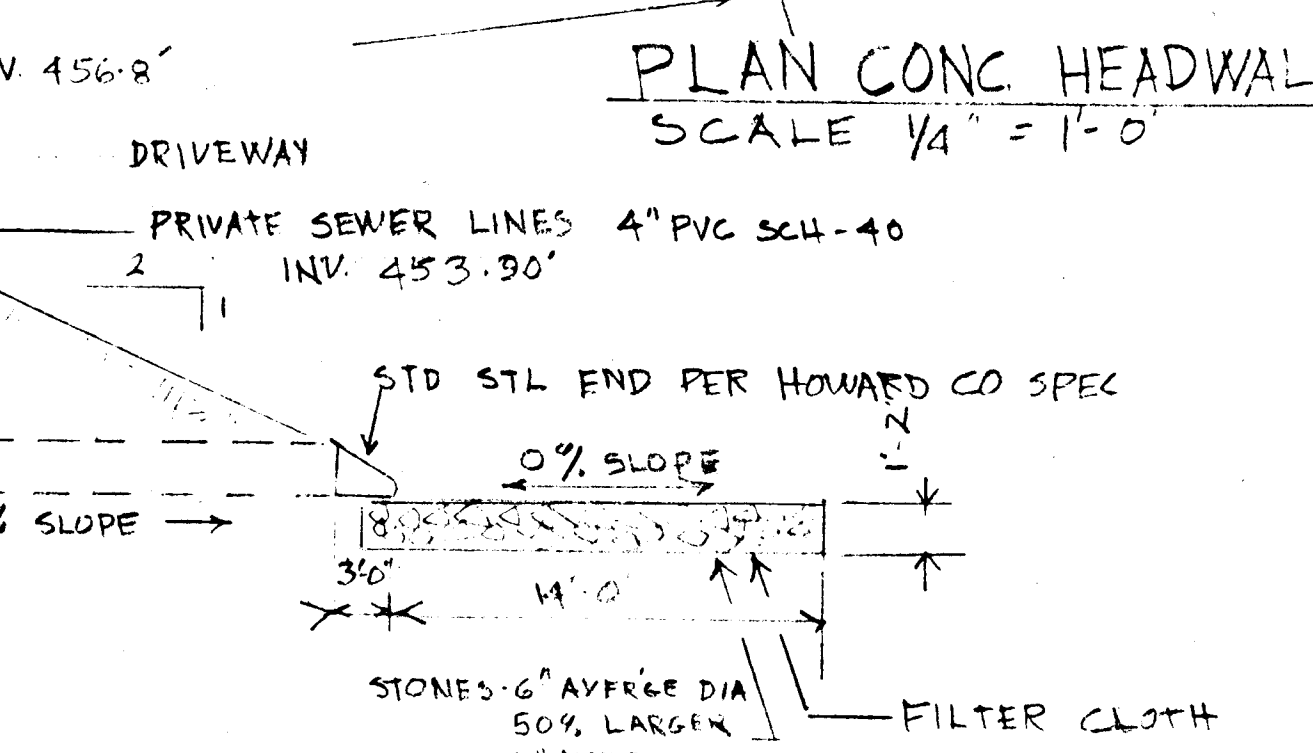 V. 456.8'
PLAN CONC. HEADWAL
SCALE 1/4" = 1'-0"
DRIVEWAY
PRIVATE SEWER LINES 4" PVC SCH-40
INV. 453.90'
2
1
STD STL END PER HOWARD CO SPEC
0% SLOPE
% SLOPE
3'-0"
14'-0
STONES. 6" AVER'GE DIA
50% LARGER
FILTER CLOTH